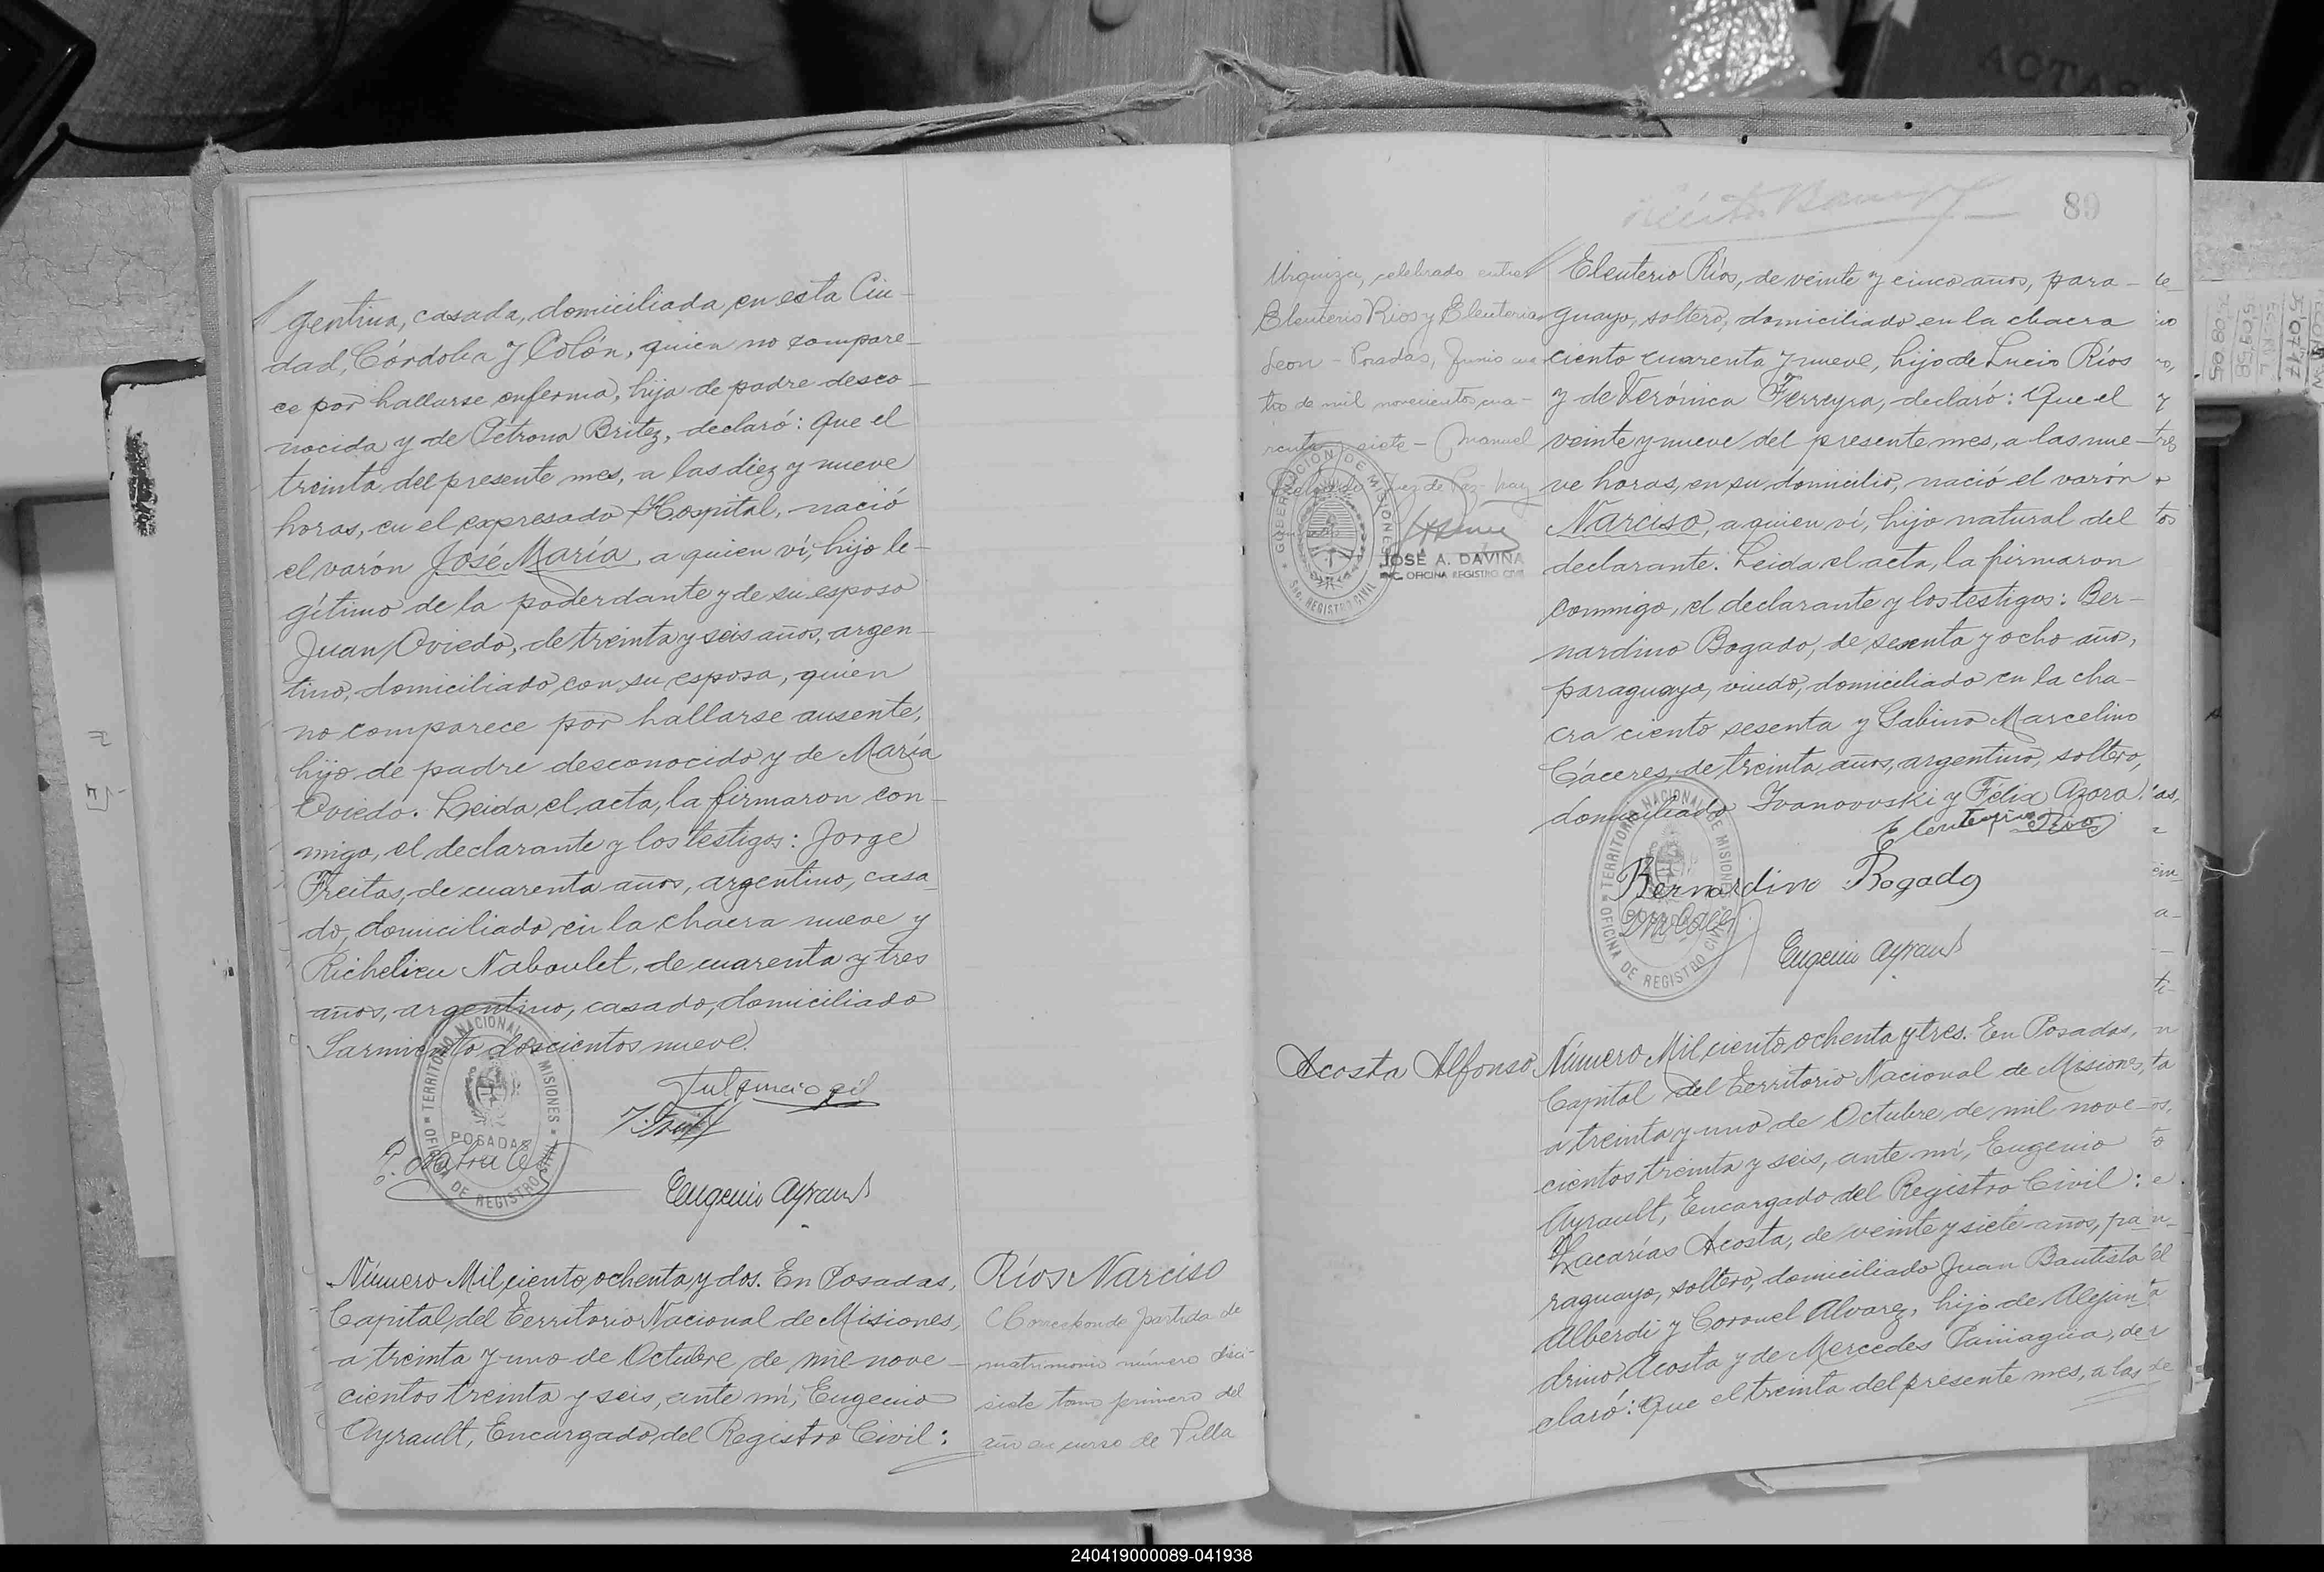 gentina, casada, domiciliada en esta Ciu-
dad, Córdoba y Colón, quien no compare-
ce por hallarse enferma, hija de padre desco-
nocido y de Petrona Britez, declaró: Que el
treinta del presente mes, a las diez y nueve
horas, en el expresado Hospital, nació
el varón José María, a quien ví, hijo le-
gítimo de la poderdante y de su esposo
Juan Oviedo, de treinta y seis años, argen-
tino, domiciliado con su esposa, quien
no comparece por hallarse ausente,
hijo de padre desconocido y de María
Oviedo. Leida el acta, la firmaron con-
migo, el declarante y los testigos: Jorge
Freitas, de cuarenta años, argentino, casa-
do, domiciliado en la chacra nueve y
Richelieu Naboulet, de cuarenta y tres
años, argentino, casado, domiciliado
Sarmiento doscientos nueve.
TERRITORIO NACIONAL DE MISIONES
POSADAS
OFICINA DE REGISTRO CIVIL
Fulgencio Gil
Eugenio Ayrault
Número Mil ciento ochenta y dos. En Posadas,
Capital del Territorio Nacional de Misiones,
a treinta y uno de Octubre de mil nove-
cientos treinta y seis, ante mí, Eugenio
Ayrault, Encargado del Registro Civil:
Ríos Narciso
Corresponde partida de
matrimonio número dieci-
siete tomo primero del
año en curso de Villa
89
Urquiza, celebrado entre
Eleuterio Rios y Eleuteria
Leon - Posadas, Junio cua
tro de mil novecientos cua-
renta y siete - Manuel
Juez de Paz- hay
GOBERNACION DE MISIONES
REGISTRO CIVIL
JOSÉ A. DAVIÑA
ENC. OFICINA REGISTRO CIVIL
Eleuterio Ríos, de veinte y cinco años, para-
guayo, soltero, domiciliado en la chacra
ciento cuarenta y nueve, hijo de Lucio Ríos
y de Verónica Ferreyra, declaró: Que el
veinte y nueve del presente mes, a las nue-
ve horas, en su domicilio, nació el varón
Narciso, a quien ví, hijo natural del
declarante. Leida el acta, la firmaron
conmigo, el declarante y los testigos: Ber-
nardino Bogado, de sesenta y ocho año,
paraguayo, viudo, domiciliado en la cha-
cra ciento sesenta y Gabino Marcelino
Cáceres, de treinta años, argentino, soltero,
domiciliado Ivanovski y Félix Azara.
Eleuterio Rios
Bernardino Bogado
TERRITORIO NACIONAL DE MISIONES
POSADAS
OFICINA DE REGISTRO CIVIL
Eugenio Ayrault
Acosta Alfonso
Número Mil ciento ochenta y tres. En Posadas,
Capital del Territorio Nacional de Misiones,
a treinta y uno de Octubre de mil nove-
cientos treinta y seis, ante mí, Eugenio
Ayrault, Encargado del Registro Civil:
Zacarías Acosta, de veinte y siete años, pa-
raguayo, soltero, domiciliado Juan Bautista
Alberdi y Coronel Alvarez, hijo de Alejan-
drino Acosta y de Mercedes Paniagüa, de-
claró: Que el treinta del presente mes, a las
240419000089-041938